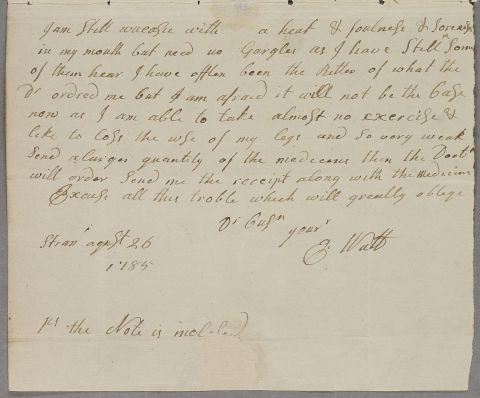 I am Still uneasie with a heat & foulness & Soreness
in my mouth but need no Gargles as I have Still Som
of them hear I have offten been the Better of what the
Dr ordred me but I am afraid it will not be the Case
now as I am able to take almost no exercise &
like to loss the use of my legs and so very weak
Send a larger quantity of the medecens then the Doctr
will order Send me the receipt along with the medicine
Excuse all this troble which will greatly oblege
Dr Cusn
your
E. Watt
Stranr agust 26
1785
ps the Note is inclosed